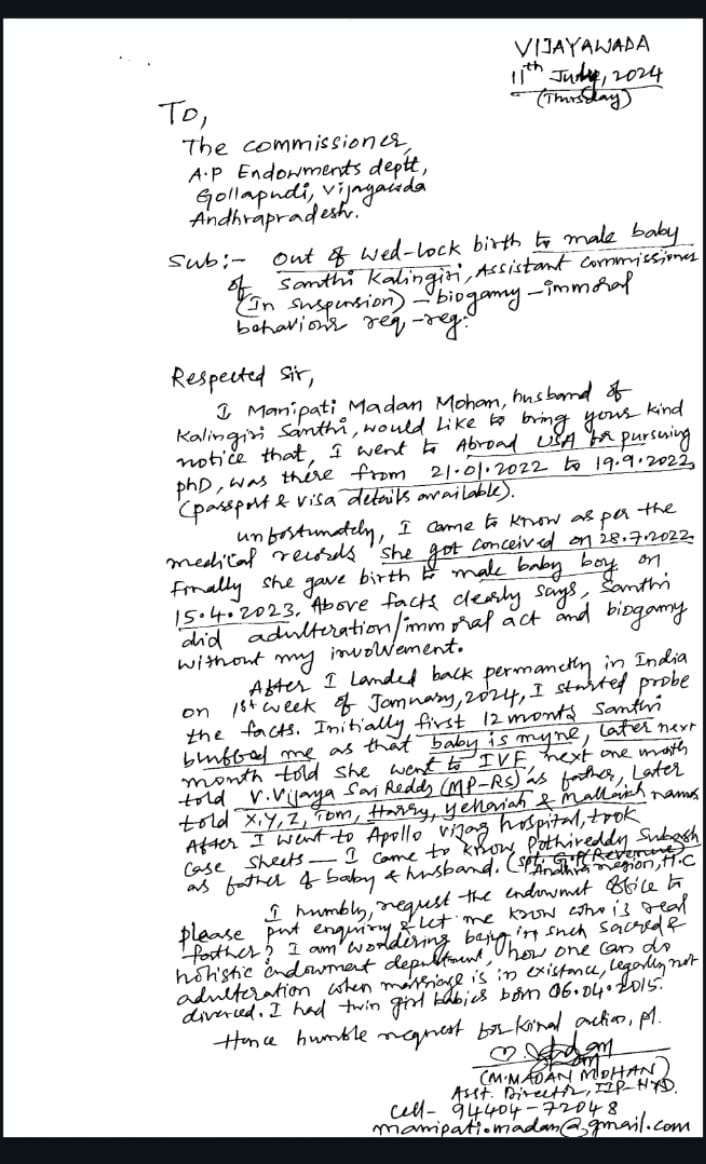 VIJAYAWADA
11th July, 2024
(Thursday)
To,
The commissioner,
A.P Endowments deptt,
Gollapudi, Vijayawada
Andhrapradesh.
Sub:- Out of wed-lock birth to male baby
of Santhi Kalingiri, Assistant commissioner
(In suspension) - biogamy - immoral
behaviour req, -reg:
Respected Sir,
I Manipati Madan Mohan, husband of
Kalingiri Santhi, would like to bring your kind
notice that, I went to Abroad USA for pursuing
phD, was there from 21.01.2022 to 19.9.2022,
(passport & visa details available).
unfortunately, I came to know as per the
medical records she got conceived on 28.7.2022.
Finally she gave birth to male baby boy on
15.4.2023. Above facts clearly says, Santhi
did adulteration/immoral act and biogamy
without my involvement.
After I Landed back permanetly in India
on 1st week of January, 2024, I started probe
the facts. Initially first 12 months Santhi
bluffed me as that baby is myne, later next
month told she went to IVF, next one month
told V. Vijaya Sai Reddy (MP-RS) as father, Later
told X, Y, Z, Tom, Harry, Yehaiah & Mallaiah names
After I went to Apollo vizag hospital, took
Case sheets - I came to know Pothireddy Subash
as father of baby & husband. (spl. G.P (Revenue)
Andhra region, H.C
I humbly, request the endowmet office to
please put enquiry & let me know who is real
father? I am wondering being in such sacred &
holistic endowment department, how one can do
adulteration when marriage is in existance, legally not
diverced. I had twin girl babies born 06.04.2015.
Hence humble request for kind action, pl.
(M.MADAN MOHAN)
Asst. Director, IIP-HYD.
cell- 94404-72048
manipati.madan@gmail.com